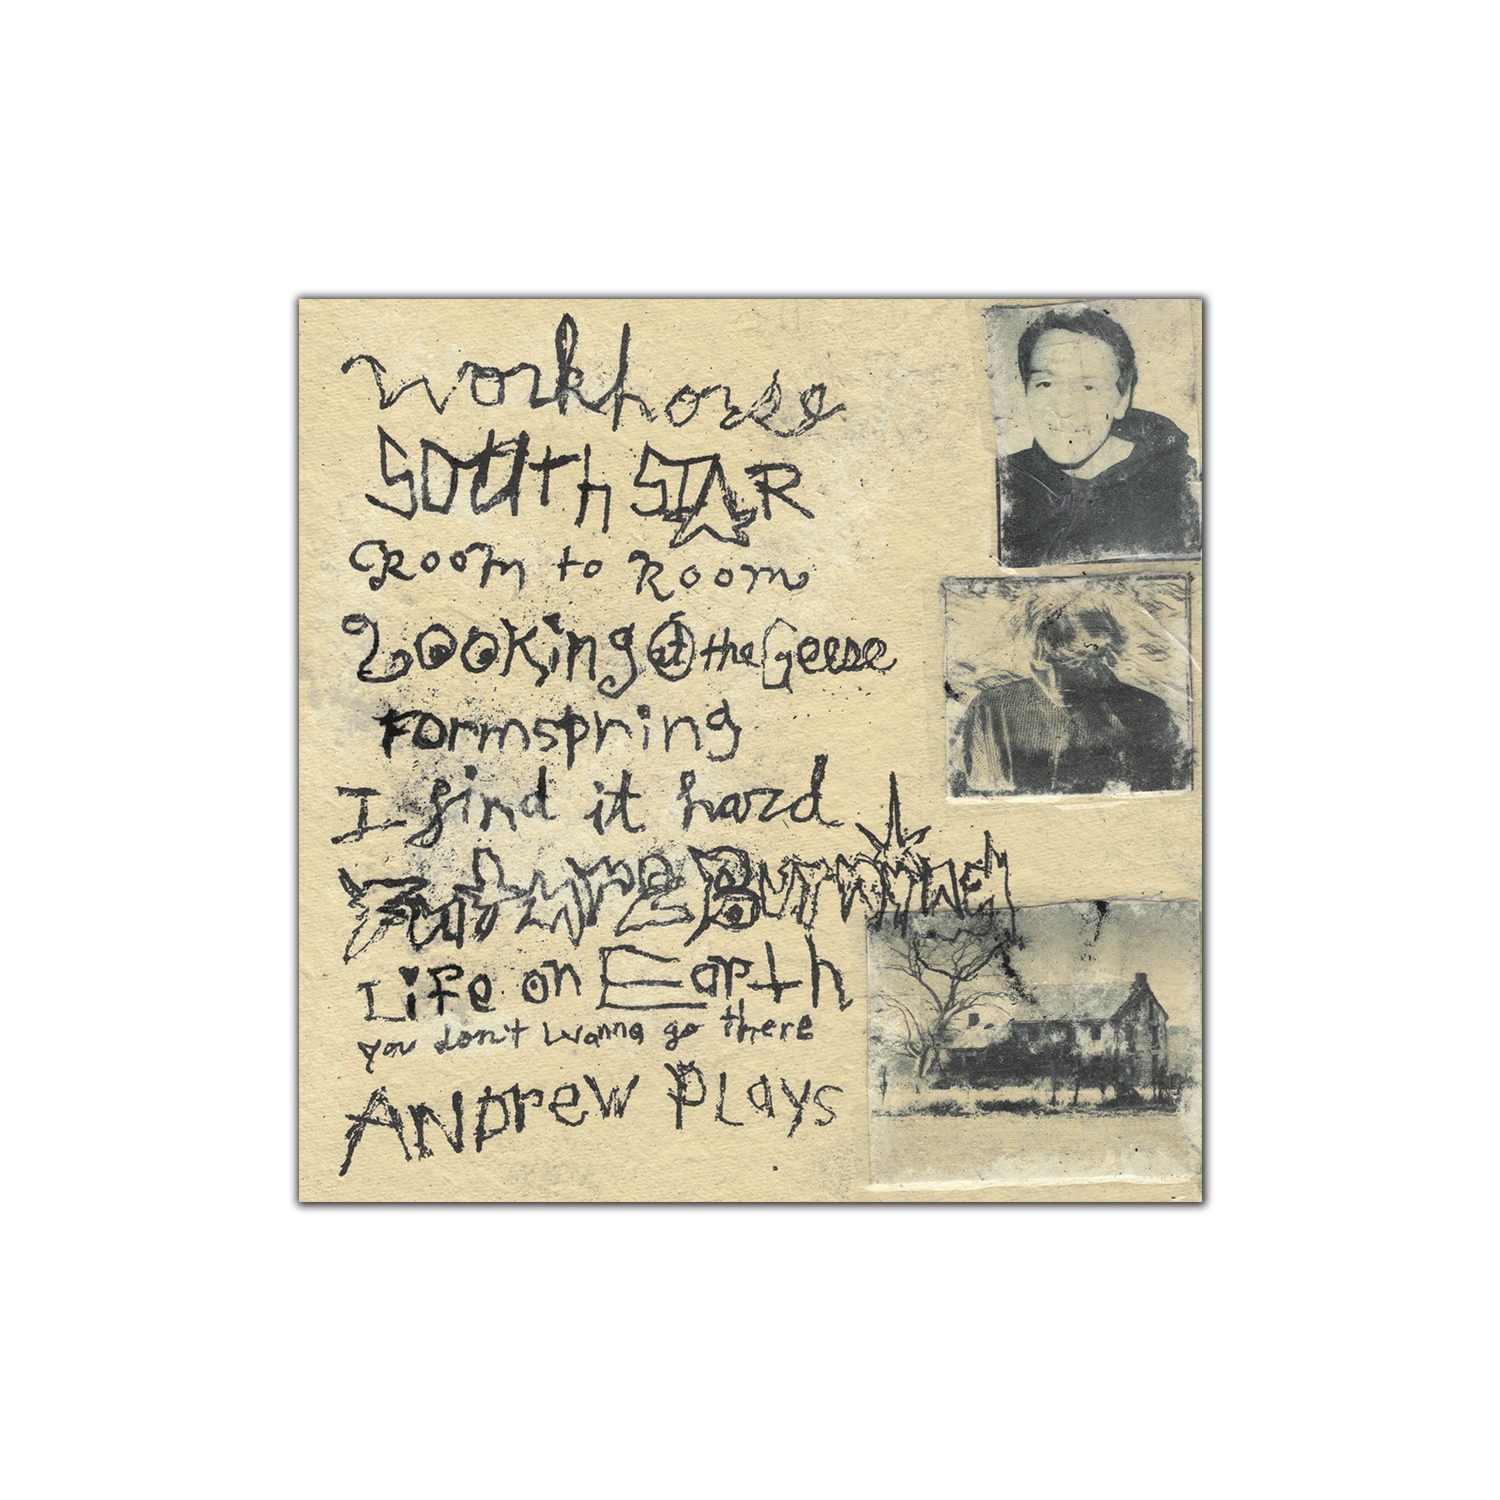 workhorse
SOUTH STAR
Room to Room
Looking at the Geese
formspring
I find it hard
Future Burwined
Life on Earth
you don't wanna go there
ANDrew PLays